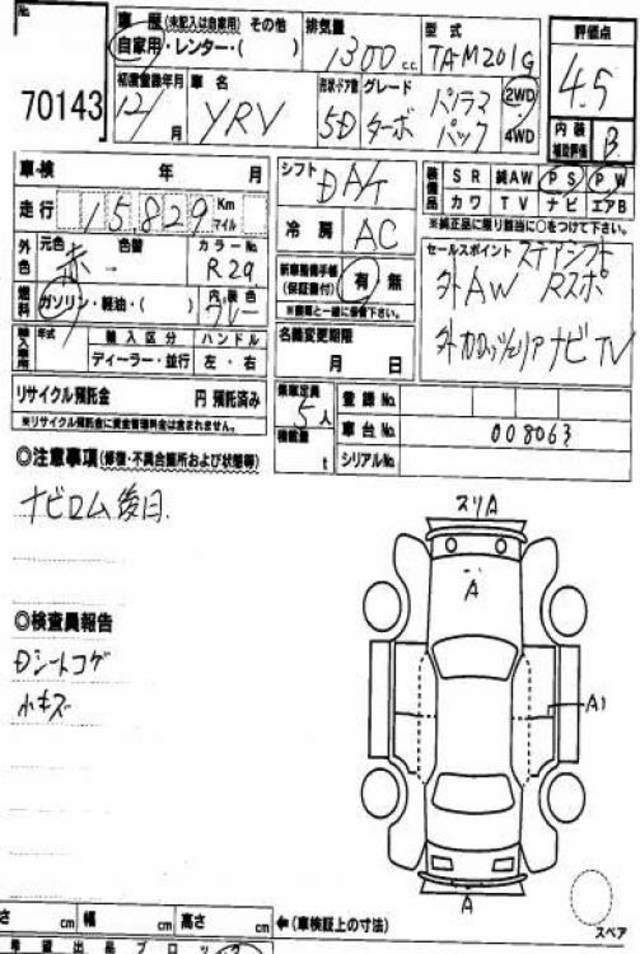 No.
70143
車歴(未記入は自家用) その他
自家用・レンター・( )
排気量
1300 c.c.
型式
TA-M201G
評価点
4.5
初度登録年月
12/ 月
車名
YRV
形状・ドア数
5D
グレード
ターボ
パノラマ
パック
2WD
・
4WD
内装
補助評価
B
車検 年 月
シフト
DA/T
装備品
SR 純AW PS PW
カワ TV ナビ エアB
※純正品に限り該当に○をつけて下さい。
走行
15,829
Km
マイル
冷房
AC
外色
元色
赤
色替
カラーNo.
R29
セールスポイント
ステアシフト
外AW Rスポ
外カロッツェリアナビTV
新車整備手帳
(保証書付)
有 無
燃料
ガソリン・軽油・( )
内装色
グレー
名義変更期限
月 日
輸入車両
年式
輸入区分
ディーラー・並行
ハンドル
左・右
リサイクル預託金 円 預託済み
※リサイクル預託金に資金管理料金は含まれません。
乗車定員
5人
積載量
t
登録No.
車台No. 008063
シリアルNo.
◎注意事項(修復・不具合箇所および状態等)
ナビロム後日.
◎検査員報告
Dシートコゲ
小キズ
スリA
A
A1
A
スペア
さ cm 幅 cm 高さ cm ←(車検証上の寸法)
希望出品ブロック